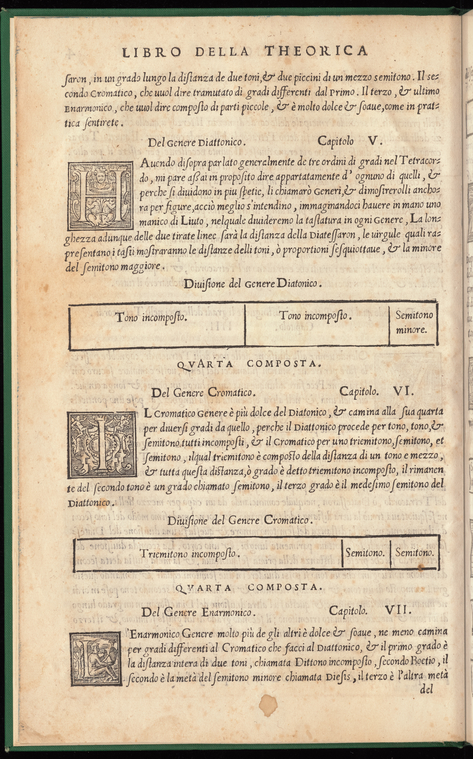 LIBRO DELLA THEORICA
saron, in un grado lungo la distanza de due toni, & due piccini di un mezzo semitono. Il se-
condo Cromatico, che vuol dire tramutato di gradi differenti dal Primo. Il terzo, & ultimo
Enarmonico, che vuol dire composto di parti piccole, & è molto dolce & soave, come in prat-
tica sentirete.
Del Genere Diattonico. Capitolo V.
HAuendo disopra parlato generalmente de tre ordini di gradi nel Tetracor-
do, mi pare assai in proposito dire appartatamente d'ognuno di quelli, &
perche si diuidono in piu spetie, li chiamarò Generi, & dimostrerolli ancho-
ra per figure, acciò meglio s'intendino, immaginandoci hauere in mano uno
manico di Liuto, nelquale diuideremo la tastatura in ogni Genere, La lon-
ghezza adunque delle due tirate linee sarà la distanza della Diatessaron, le uirgule quali ra-
presentano i tasti mostraranno le distanze delli toni, ò proportioni sesquiottaue, & la minore
del semitono maggiore.
Diuisione del Genere Diatonico.
Tono incomposto. Tono incomposto. Semitono
minore.
QVARTA COMPOSTA.
Del Genere Cromatico. Capitolo. VI.
IL Cromatico Genere è più dolce del Diatonico, & camina alla sua quarta
per diuersi gradi da quello, perche il Diattonico procede per tono, tono, &
semitono tutti incomposti, & il Cromatico per uno triemitono, semitono, et
semitono, ilqual triemitono è composto della distanza di un tono e mezzo,
& tutta questa distanza, ò grado è detto triemitono incomposto, il rimanen
te del secondo tono è un grado chiamato semitono, il terzo grado è il medesimo semitono del
Diattonico.
Diuisione del Genere Cromatico.
Triemitono incomposto. Semitono. Semitono.
QVARTA COMPOSTA.
Del Genere Enarmonico. Capitolo. VII.
L'Enarmonico Genere molto più de gli altri è dolce & soaue, ne meno camina
per gradi differenti al Cromatico che facci al Diattonico, & il primo grado è
la distanza intera di due toni, chiamata Dittono incomposto, secondo Boetio, il
secondo è la metà del semitono minore chiamata Diesis, il terzo è l'altra metà
del